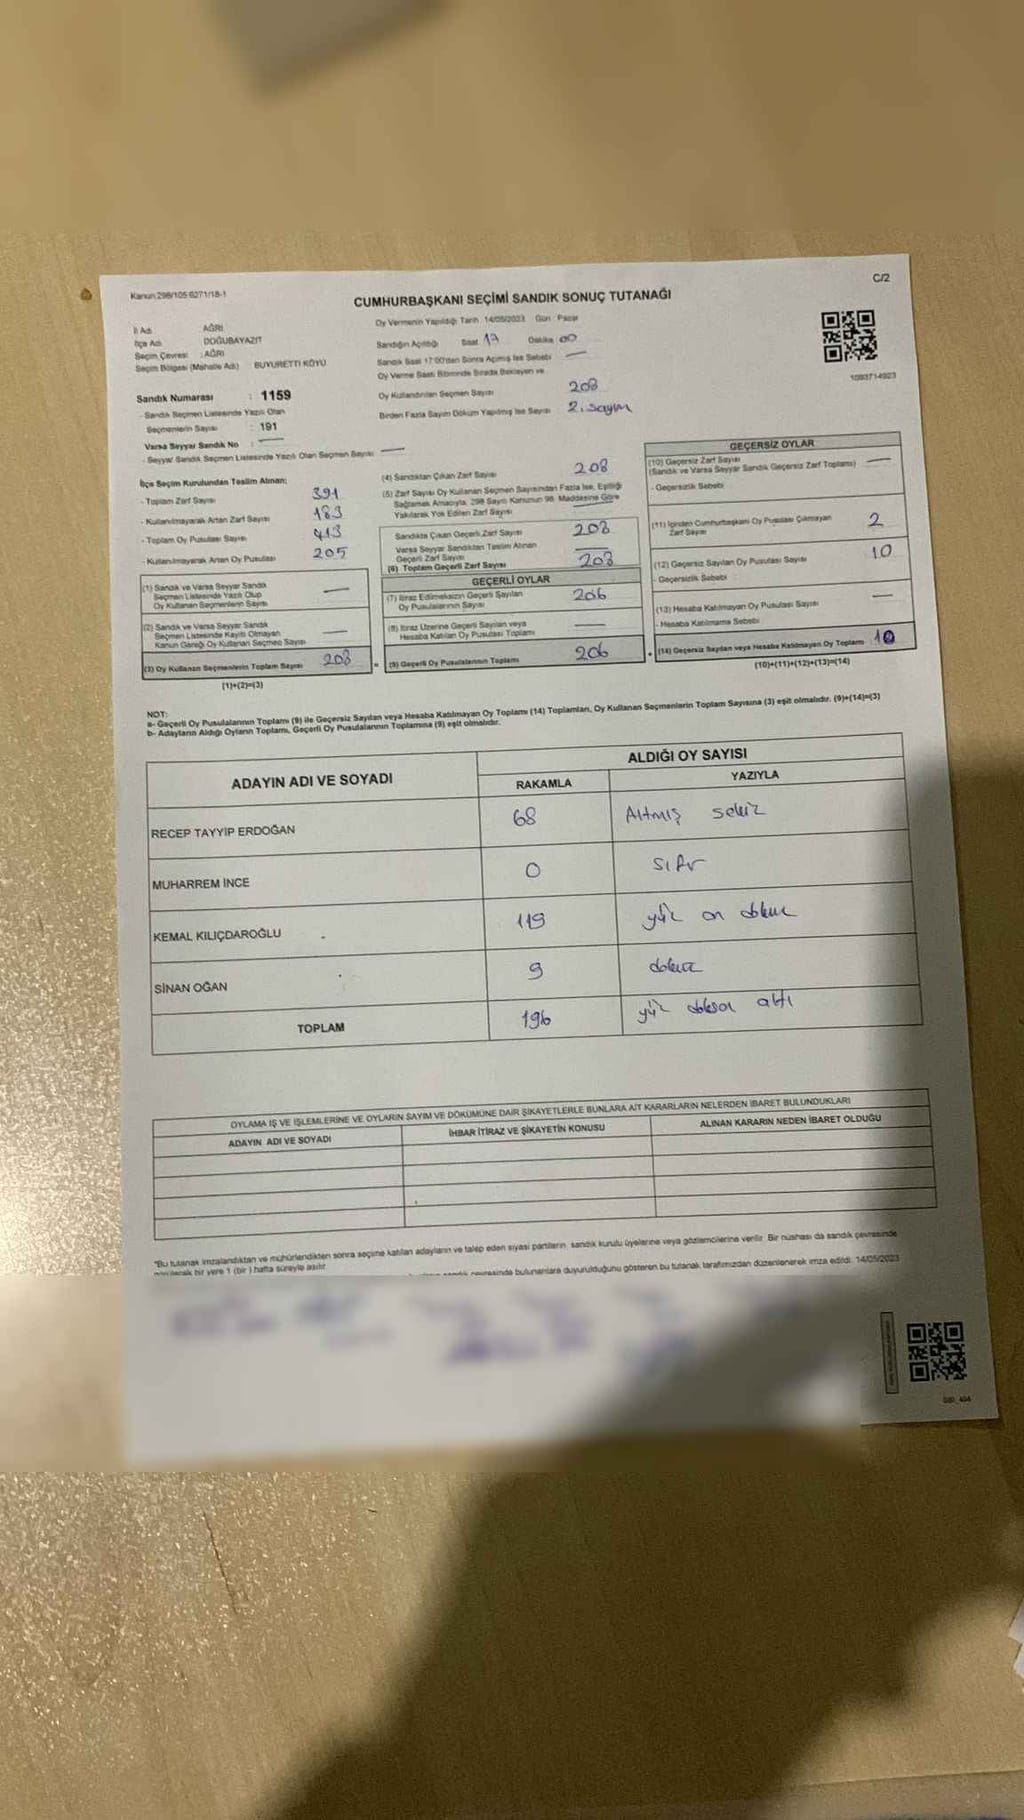 Kanun:298/105-6271/18-1
C/2
CUMHURBAŞKANI SEÇİMİ SANDIK SONUÇ TUTANAĞI
İl Adı AĞRI
İlçe Adı DOĞUBAYAZIT
Seçim Çevresi : AĞRI
Seçim Bölgesi (Mahalle Adı) BUYURETTİ KÖYÜ
Sandık Numarası : 1159
- Sandık Seçmen Listesinde Yazılı Olan
Seçmenlerin Sayısı : 191
Varsa Seyyar Sandık No : —
- Seyyar Sandık Seçmen Listesinde Yazılı Olan Seçmen Sayısı —
Oy Vermenin Yapıldığı Tarih 14/05/2023 Gün : Pazar
Sandığın Açıldığı Saat 17 Dakika 00
Sandık Saat 17:00'den Sonra Açılmış İse Sebebi —
Oy Verme Saati Bitiminde Sırada Bekleyen ve
Oy Kullandırılan Seçmen Sayısı 208
Birden Fazla Sayım Döküm Yapılmış İse Sayısı 2. sayım
1093714923
İlçe Seçim Kurulundan Teslim Alınan;
- Toplam Zarf Sayısı 391
- Kullanılmayarak Artan Zarf Sayısı 183
- Toplam Oy Pusulası Sayısı 413
- Kullanılmayarak Artan Oy Pusulası 205
(1) Sandık ve Varsa Seyyar Sandık
Seçmen Listesinde Yazılı Olup
Oy Kullanan Seçmenlerin Sayısı —
(2) Sandık ve Varsa Seyyar Sandık
Seçmen Listesinde Kayıtlı Olmayan
Kanun Gereği Oy Kullanan Seçmen Sayısı —
(3) Oy Kullanan Seçmenlerin Toplam Sayısı 208
(1)+(2)=(3)
(4) Sandıktan Çıkan Zarf Sayısı 208
(5) Zarf Sayısı Oy Kullanan Seçmen Sayısından Fazla İse, Eşitliği
Sağlamak Amacıyla, 298 Sayılı Kanunun 98. Maddesine Göre
Yakılarak Yok Edilen Zarf Sayısı —
Sandıkta Çıkan Geçerli Zarf Sayısı 208
Varsa Seyyar Sandıktan Teslim Alınan
Geçerli Zarf Sayısı —
(6) Toplam Geçerli Zarf Sayısı 208
GEÇERLİ OYLAR
(7) İtiraz Edilmeksizin Geçerli Sayılan
Oy Pusulalarının Sayısı 206
(8) İtiraz Üzerine Geçerli Sayılan veya
Hesaba Katılan Oy Pusulası Toplamı —
= (9) Geçerli Oy Pusulalarının Toplamı 206
GEÇERSİZ OYLAR
(10) Geçersiz Zarf Sayısı
(Sandık ve Varsa Seyyar Sandık Geçersiz Zarf Toplamı) —
- Geçersizlik Sebebi
(11) İçinden Cumhurbaşkanı Oy Pusulası Çıkmayan
Zarf Sayısı 2
(12) Geçersiz Sayılan Oy Pusulası Sayısı 10
- Geçersizlik Sebebi
(13) Hesaba Katılmayan Oy Pusulası Sayısı —
- Hesaba Katılmama Sebebi
+ (14) Geçersiz Sayılan veya Hesaba Katılmayan Oy Toplamı 10
(10)+(11)+(12)+(13)=(14)
NOT:
a- Geçerli Oy Pusulalarının Toplamı (9) ile Geçersiz Sayılan veya Hesaba Katılmayan Oy Toplamı (14) Toplamları, Oy Kullanan Seçmenlerin Toplam Sayısına (3) eşit olmalıdır. (9)+(14)=(3)
b- Adayların Aldığı Oyların Toplamı, Geçerli Oy Pusulalarının Toplamına (9) eşit olmalıdır.
ADAYIN ADI VE SOYADI
ALDIĞI OY SAYISI
RAKAMLA YAZIYLA
RECEP TAYYİP ERDOĞAN 68 Altmış sekiz
MUHARREM İNCE 0 sıfır
KEMAL KILIÇDAROĞLU 119 yüz on dokuz
SİNAN OĞAN 9 dokuz
TOPLAM 196 yüz doksan altı
OYLAMA İŞ VE İŞLEMLERİNE VE OYLARIN SAYIM VE DÖKÜMÜNE DAİR ŞİKAYETLERLE BUNLARA AİT KARARLARIN NELERDEN İBARET BULUNDUKLARI
ADAYIN ADI VE SOYADI İHBAR İTİRAZ VE ŞİKAYETİN KONUSU ALINAN KARARIN NEDEN İBARET OLDUĞU
"Bu tutanak imzalandıktan ve mühürlendikten sonra seçime katılan adayların ve talep eden siyasi partilerin, sandık kurulu üyelerine veya gözlemcilerine verilir. Bir nüshası da sandık çevresinde
görülecek bir yere 1 (bir) hafta süreyle asılır.
sandık çevresinde bulunanlara duyurulduğunu gösteren bu tutanak tarafımızdan düzenlenerek imza edildi. 14/05/2023